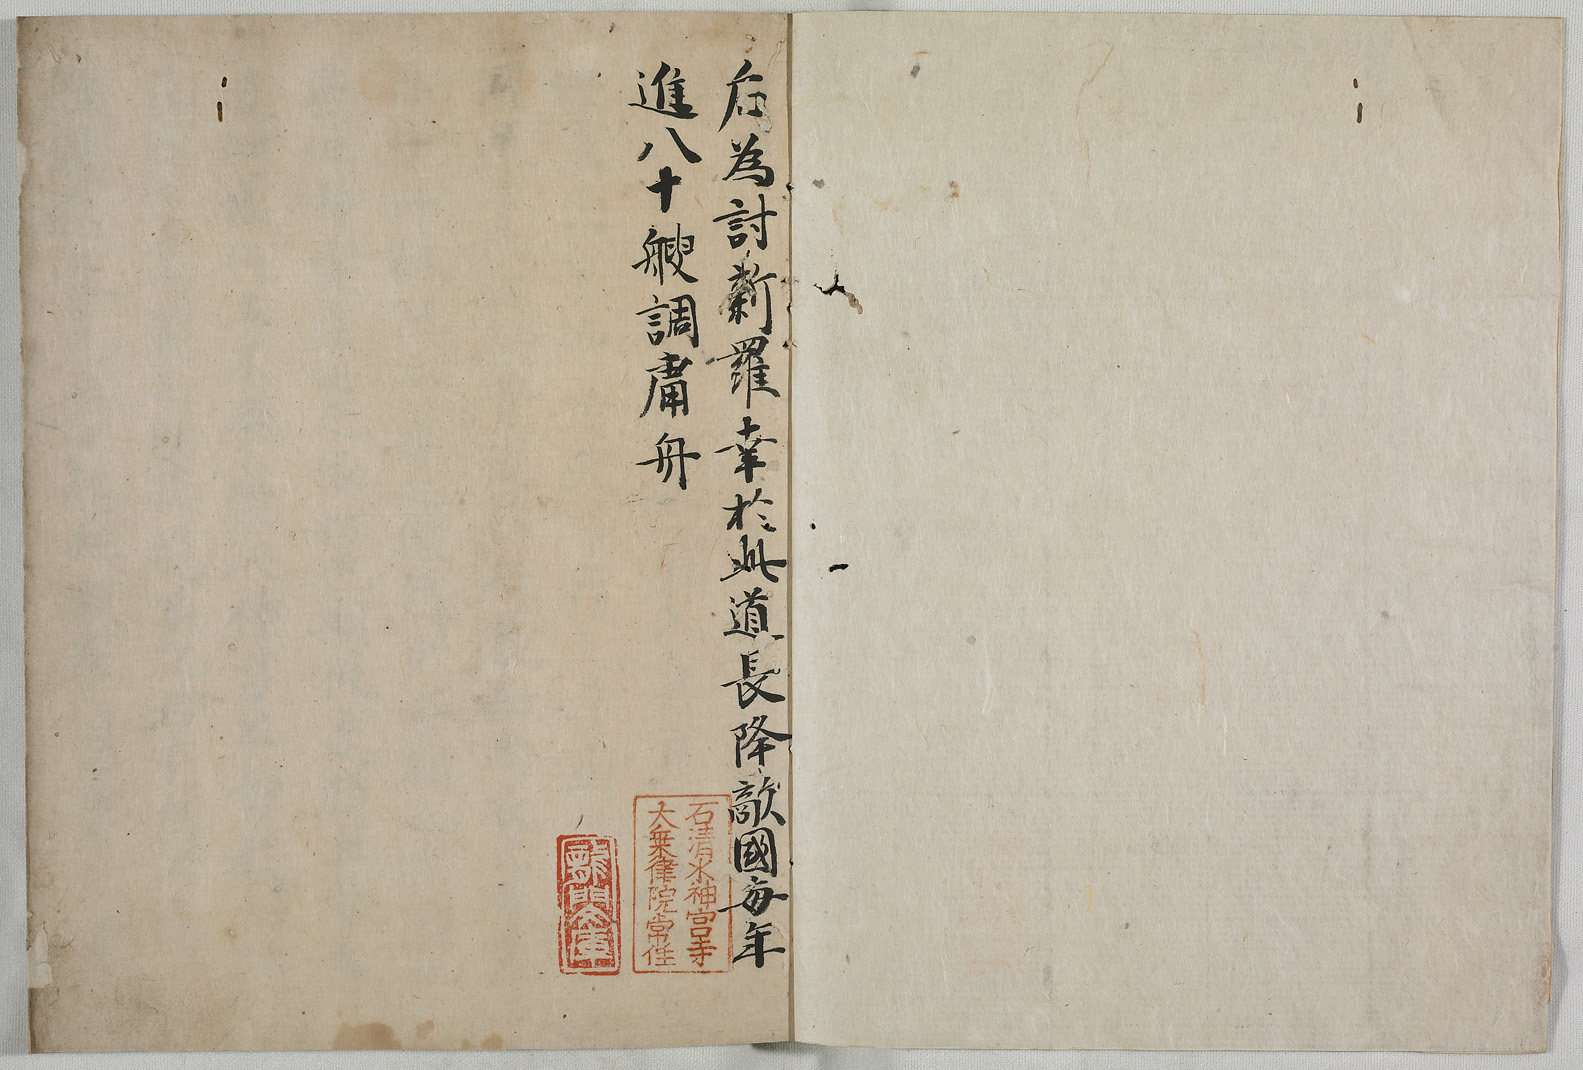 后為討新羅幸於此道長降敵國每年
進八十艘調庸舟
石清水神宮寺
大乗律院常住
龍門文庫